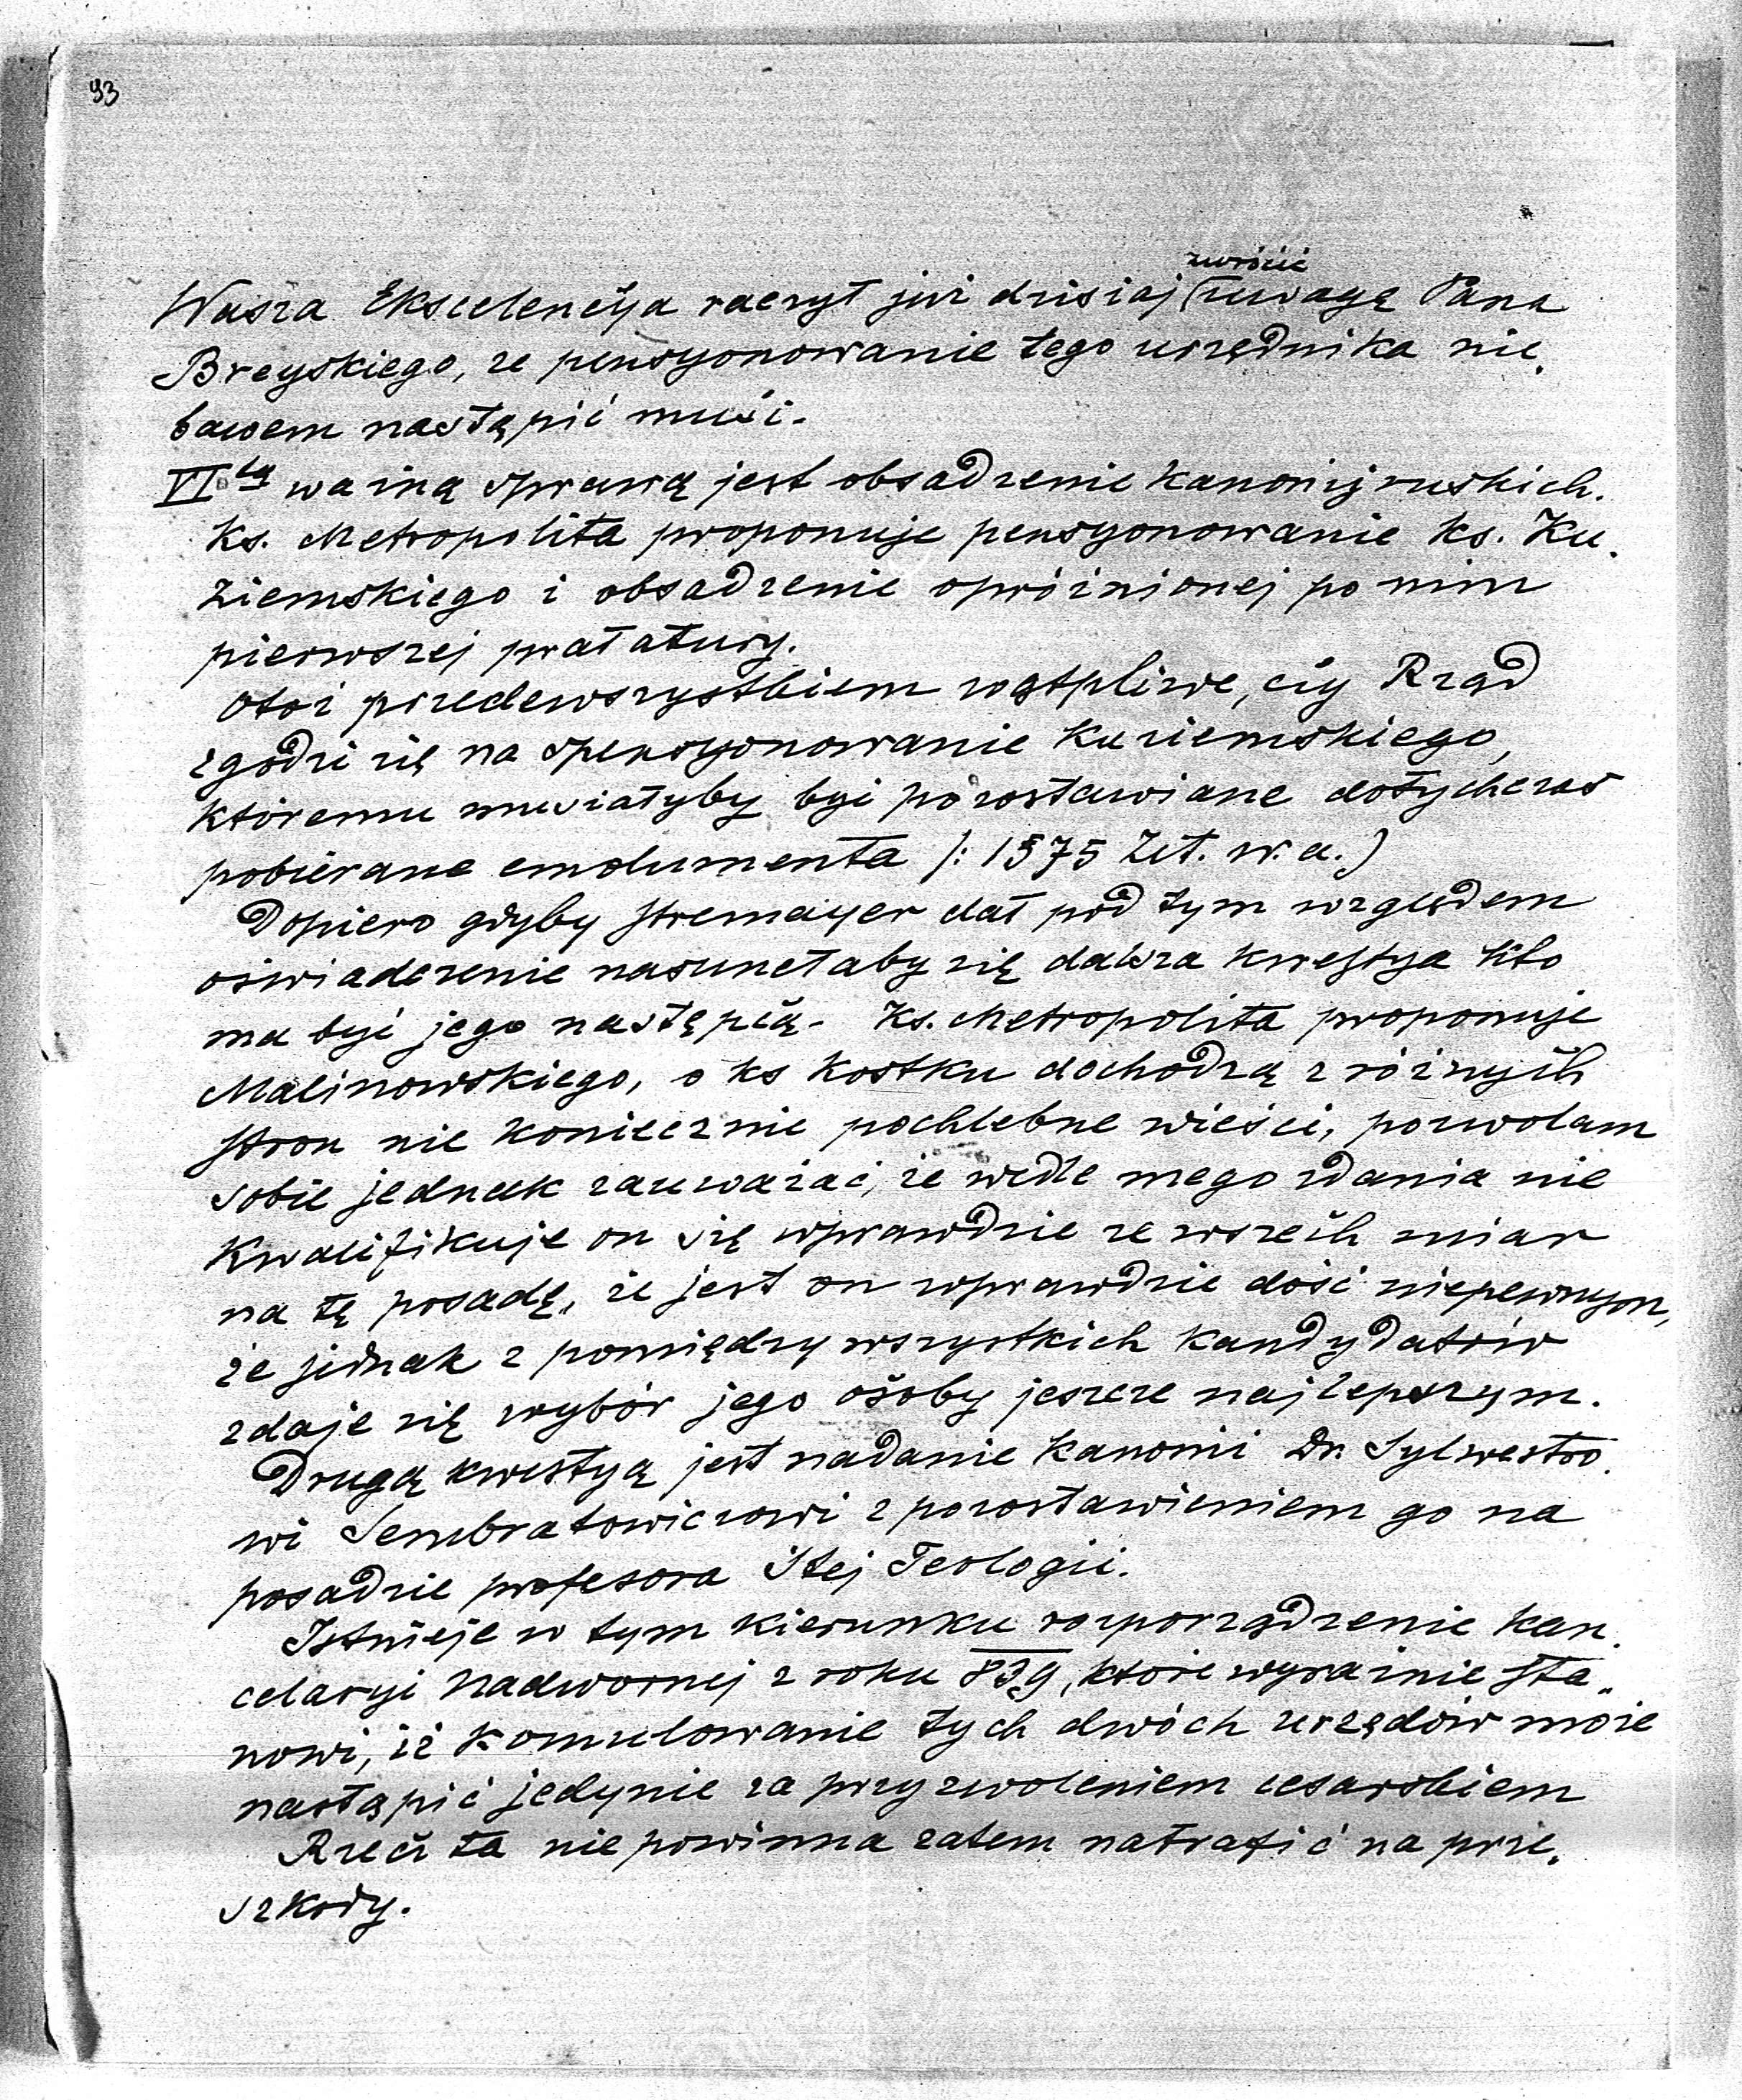 93
zwrócić
Wasza Ekscelencya raczył już dzisiaj (uwagę Pana
Breyskiego, że pensyonowanie tego urzędnika nie,
bawem nastąpić musi.
VItą ważną sprawą jest obsadzenie kanonij ruskich.
Ks. Metropolita proponuje pensyonowanie Ks. Ku,
ziemskiego i obsadzenie opróżnionej po nim
pierwszej prałatury.
Otoż przedewszystkiem wątpliwe, czy Rząd
zgodzi się na spensyonowanie Kuziemskiego,
któremu musiałyby być pozostawiane dotychczas
pobierane emolumenta /: 1575 Złt. w. a.)
Dopiero gdyby Stremayer dał pod tym względem
oświadczenie nasunęłaby się dalsza kwestya kto
ma być jego następcą. Ks. Metropolita proponuje
Malinowskiego, o ks Kostku dochodzą z różnych
stron nie koniecznie pochlebne wieści, pozwolam
sobie jednak zauważać, że wedle mego zdania nie
kwalifikuje on się wprawdzie ze wszech miar
na tę posadę, że jest on wprawdzie dość niepewnym,
że jednak z pomiędzy wszystkich kandydatów
zdaje się wybór jego osoby jeszcze najlepszym.
Drugą kwestyą jest nadanie kanonii Dr. Sylwestro,
wi Sembratowiczowi z pozostawieniem go na
posadzie profesora Stej Teologii.
Istnieje w tym kierunku rozporządzenie kan,
celaryi Nadwornej z roku 839, które wyraźnie sta,,
nowi, iż komulowanie tych dwóch urzędów może
nastąpić jedynie za przyzwoleniem cesarskiem
Rzecz ta nie powinna zatem natrafić na prze,
szkody.